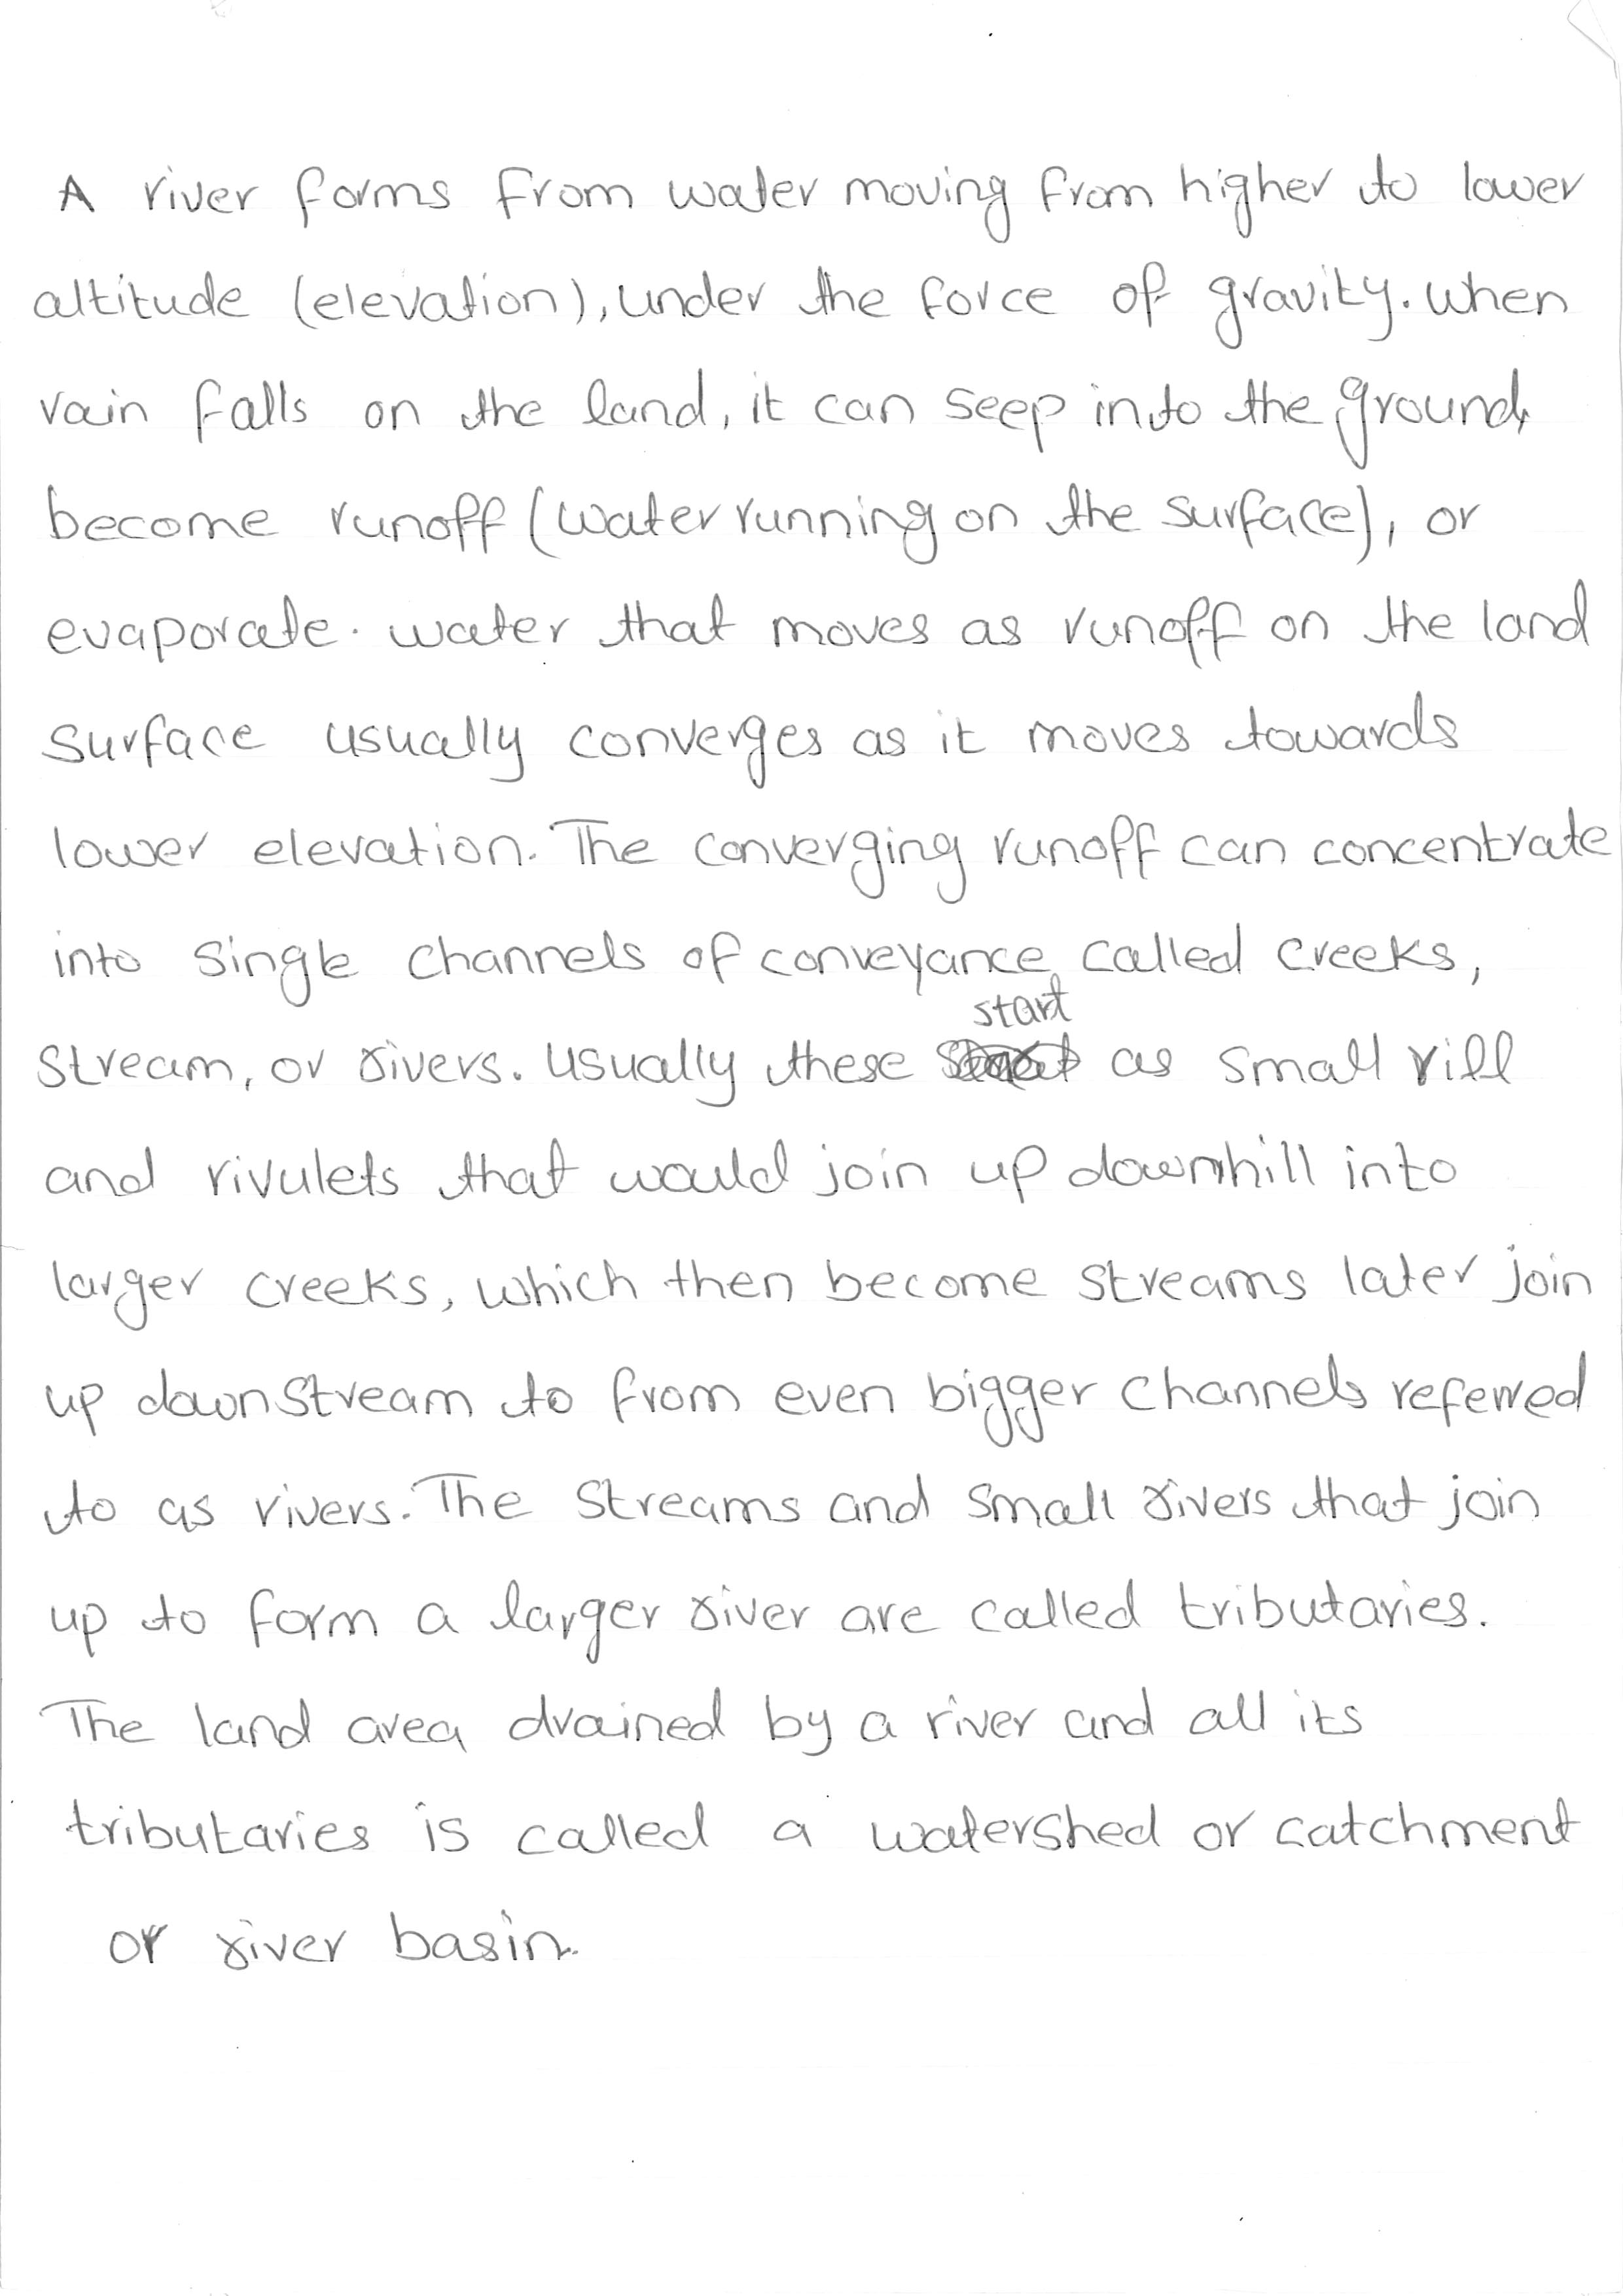 A river forms from water moving from higher to lower
altitude (elevation), under the force of gravity. when
rain falls on the land, it can seep into the ground,
become runoff (water running on the surface), or
evaporate. water that moves as runoff on the land
surface usually converges as it moves towards
lower elevation. The converging runoff can concentrate
into single channels of conveyance, called creeks,
stream, or rivers. usually these start as small rill
and rivulets that would join up downhill into
larger creeks, which then become streams later join
up downstream to from even bigger channels referred
to as rivers. The streams and small rivers that join
up to form a larger river are called tributaries.
The land area drained by a river and all its
tributaries is called a watershed or catchment
or river basin.